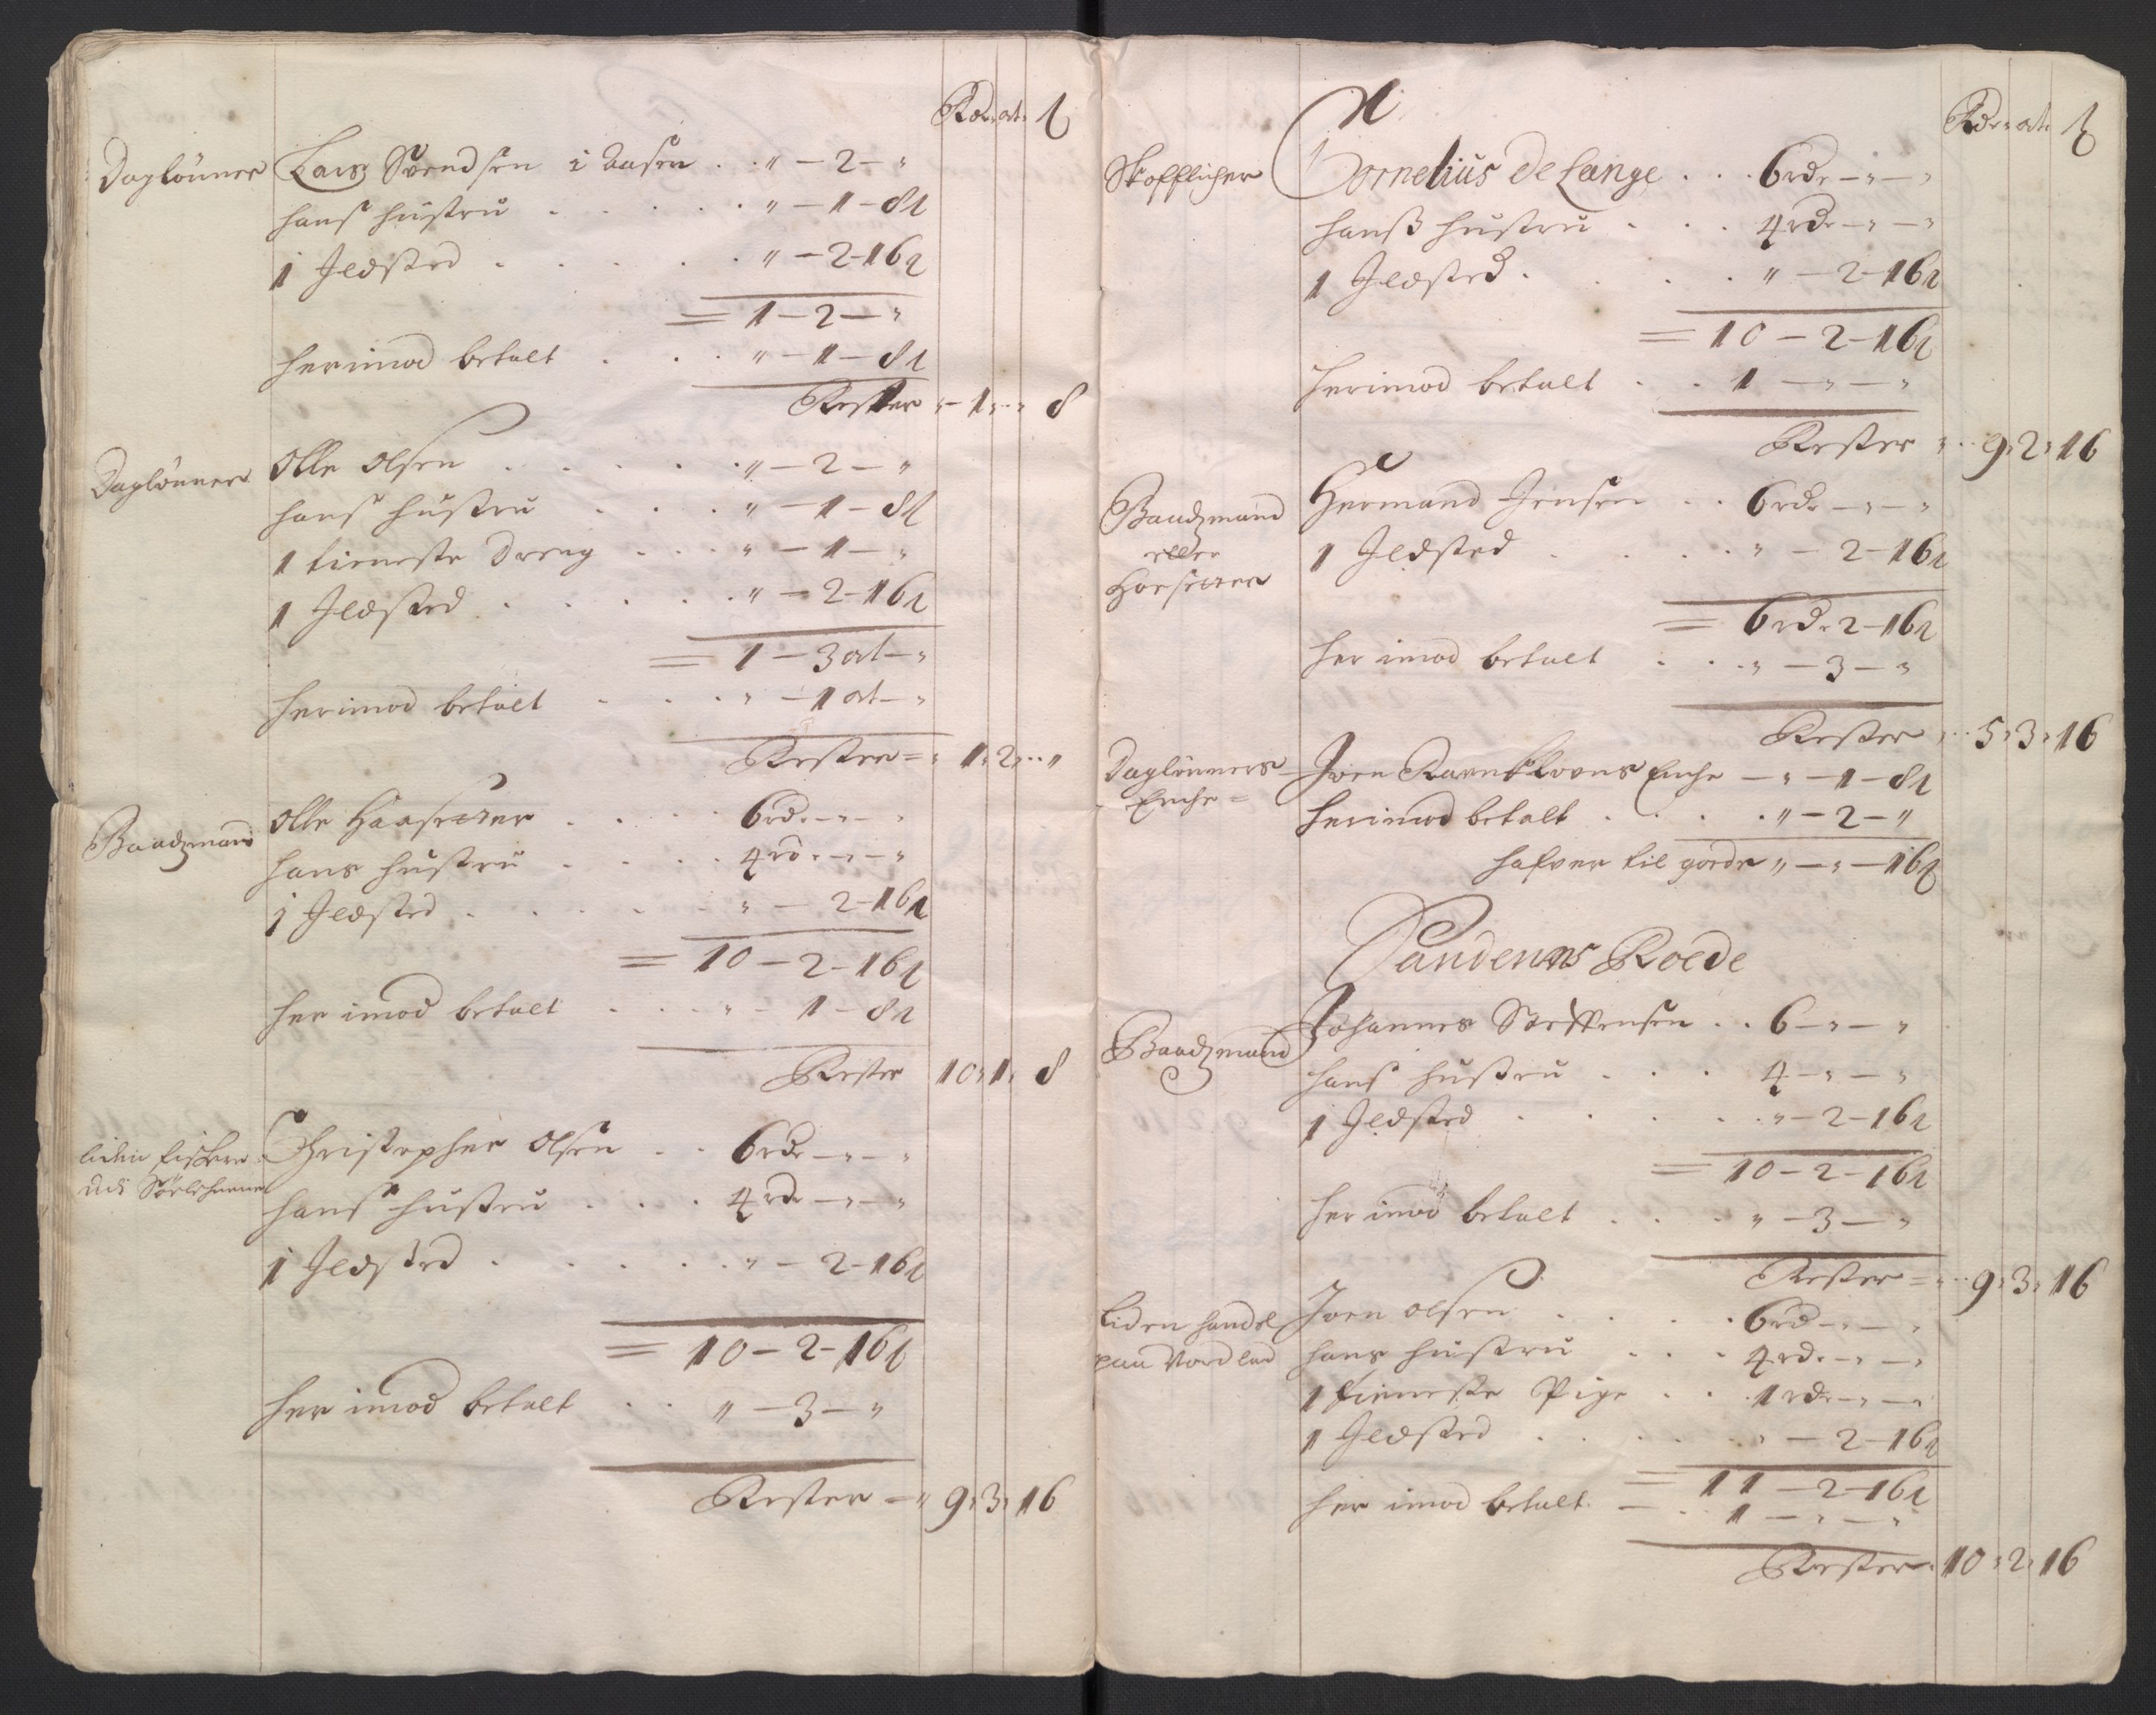 Rdr. ort. ß
Daglönner Lars Svendsen i Aasen . . " – 2 – "
hans hustru . . . . . " – 1 – 8 ß
1 Ildsted . . . . . " – 2 – 16 ß
= 1 – 2 – "
herimod betalt . . . " – 1 – 8 ß
Rester " – 1 " " 8
Daglönner Olle Olsen . . . . . " – 2 – "
hans hustru . . . . " – 1 – 8 ß
1 tieneste Dreng . . . " – 1 – "
1 Ildsted . . . . . " – 2 – 16 ß
= 1 – 3 ort – "
herimod betalt . . . . " – 1 ort – "
Rester = " 1 " 2 " "
Baadzmand Olle Haasetter . . . . 6 rdr. – " – "
hans hustru . . . . 4 rdr. – " – "
1 Ildsted . . . . . " – 2 – 16 ß
= 10 – 2 – 16 ß
her imod betalt . . . " – 1 – 8 ß
Rester 10 " 1 " 8
liden fiskere
Christopher Olsen . . 6 rdr – " – "
hans hustru . . . 4 rdr – " – "
1 Ildsted . . . . . " – 2 – 16 ß
= 10 – 2 – 16 ß
her imod betalt . . " – 3 – "
Rester – " 9 " 3 " 16
Rdr. ort. ß
Skofflicher Cornelius De Lange . . . 6 rdr – " – "
hanß hustru . . . 4 rdr – " – "
1 Ildsted . . . . " – 2 – 16 ß
= 10 – 2 – 16 ß
herimod betalt . . 1 – " – "
Rester " . . 9 " 2 " 16
Baadzmand Hermand Jensen . . 6 rdr – " – "
eller 1 Ildsted . . . . " – 2 – 16 ß
Hoesetter
= 6 rdr. 2 – 16 ß
her imod betalt . . . " – 3 – "
Rester " . . 5 " 3 " 16
Daglönners Enche = Joen Ravnkloens Enche – " – 1 – 8 ß
herimod betalt . . . . " – 2 – "
hafver til gorde " – " – 16 ß
Sandenns Roede
Baadzmand Johannes Steffensen . . 6 – " – "
hans hustru . . . 4 – " – "
1 Ildsted . . . . . " – 2 – 16 ß
= 10 – 2 – 16 ß
her imod betalt . . . " – 3 – "
Rester = " . . 9 " 3 " 16
Liden handel Joen Olsen . . . . 6 rd – " – "
paa Nordland hans hustru . . . 4 rdr. – " – "
1 tieneste Pige . . . 1 rdr – " – "
1 Ildsted . . . . . " – 2 – 16 ß
= 11 – 2 – 16 ß
her imod betalt. – . . 1 – " – "
Rester. 10 " 2 " 16